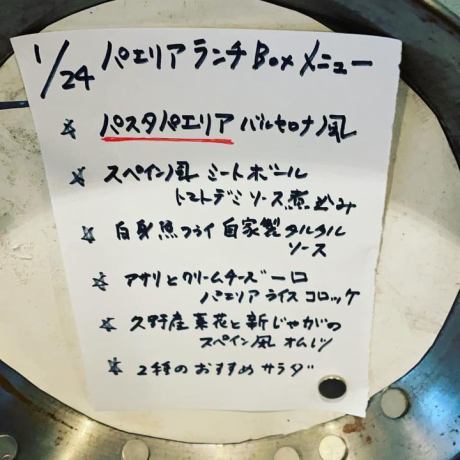 1/24 パエリアランチBoxメニュー
☆ パスタパエリア バルセロナ風
☆ スペイン風 ミートボール
トマトデミソース煮込み
☆ 白身魚フライ 自家製タルタル
ソース
☆ アサリとクリームチーズ一口
パエリアライスコロッケ
☆ 久野産菜花と新じゃがの
スペイン風オムレツ
☆ 2種のおすすめサラダ